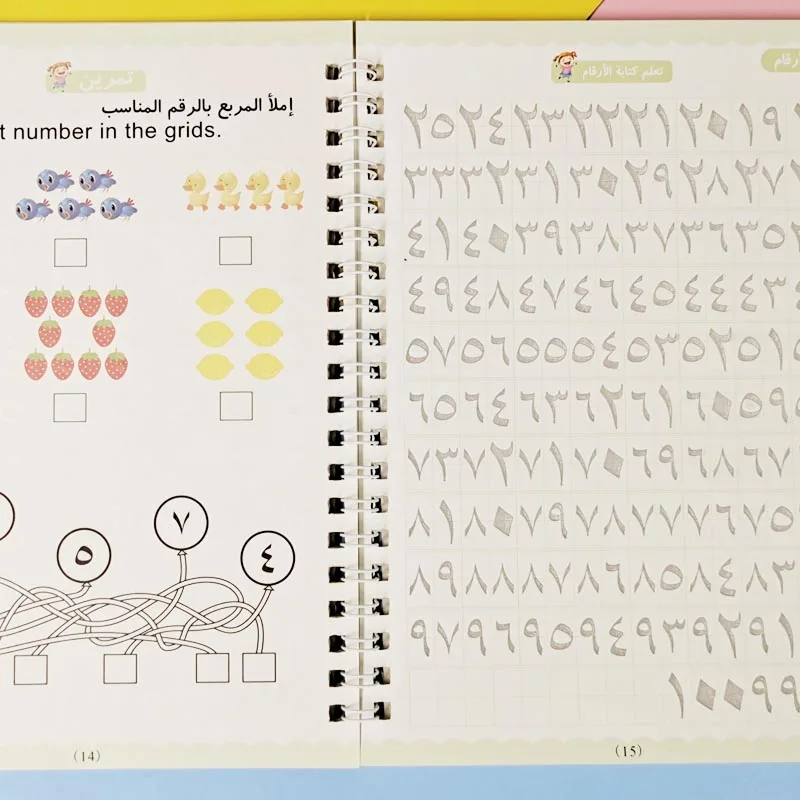 تمرين
إملأ المربع بالرقم المناسب
t number in the grids.
٧
٥
٤
(14)
تعلم كتابة الأرقام
١٩ ٢٠ ٢١ ٢٢ ٢٣ ٢٤ ٢٥
٢٧ ٢٨ ٢٩ ٣٠ ٣١ ٣٢ ٣٣
٣٥ ٣٦ ٣٧ ٣٨ ٣٩ ٤٠ ٤١
٤٣ ٤٤ ٤٥ ٤٦ ٤٧ ٤٨ ٤٩
٥١ ٥٢ ٥٣ ٥٤ ٥٥ ٥٦ ٥٧
٥٩ ٦٠ ٦١ ٦٢ ٦٣ ٦٤ ٦٥
٦٧ ٦٨ ٦٩ ٧٠ ٧١ ٧٢ ٧٣
٧٥ ٧٦ ٧٧ ٧٨ ٧٩ ٨٠ ٨١
٨٣ ٨٤ ٨٥ ٨٦ ٨٧ ٨٨ ٨٩
٩١ ٩٢ ٩٣ ٩٤ ٩٥ ٩٦ ٩٧
٩٩ ١٠٠
(15)